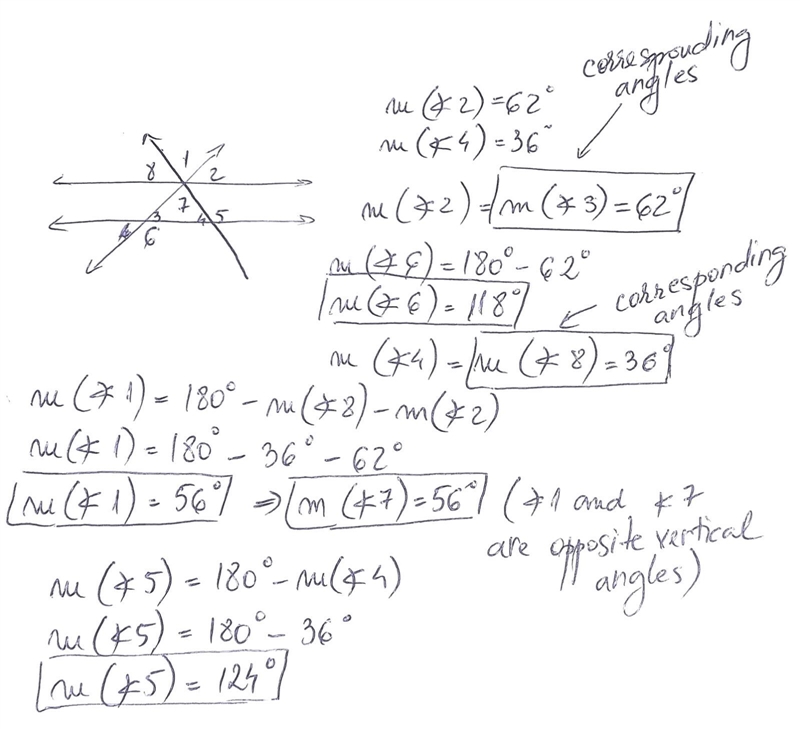 corresponding
angles
m(∡2)=62°
m(∡4)=36°
m(∡2)=m(∡3)=62°
8 1 2
7
3 4 5
6
m(∡6)=180°-62°
m(∡6)=118°
corresponding
angles
m(∡4)=m(∡8)=36°
m(∡1)=180°-m(∡8)-m(∡2)
m(∡1)=180°-36°-62°
m(∡1)=56° ⇒ m(∡7)=56° (∡1 and ∡7
are opposite vertical
angles)
m(∡5)=180°-m(∡4)
m(∡5)=180°-36°
m(∡5)=124°